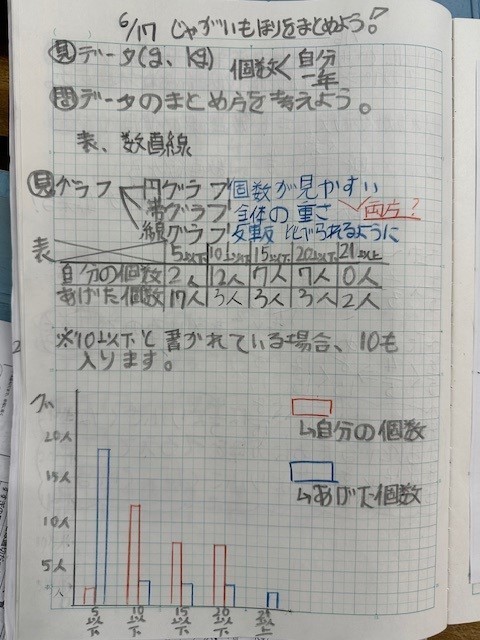 6/17 じゃがいもほりをまとめよう!
見 データ(g、kg) 個数く自分
一年
問 データのまとめ方を考えよう。
表、数直線
見 グラフ 円グラフ 個数が見やすい
帯グラフ 全体の重さ 両方?
線グラフ 比べられるように
表 5以下 10以下 15以下 20以下 21以上
自分の個数 2人 12人 7人 7人 0人
あげた個数 17人 3人 3人 3人 2人
※10以下と書かれている場合、10も
入ります。
20人
15人
10人
5人
人
→自分の個数
→あげた個数
5以下 10以下 15以下 20以下 21以上